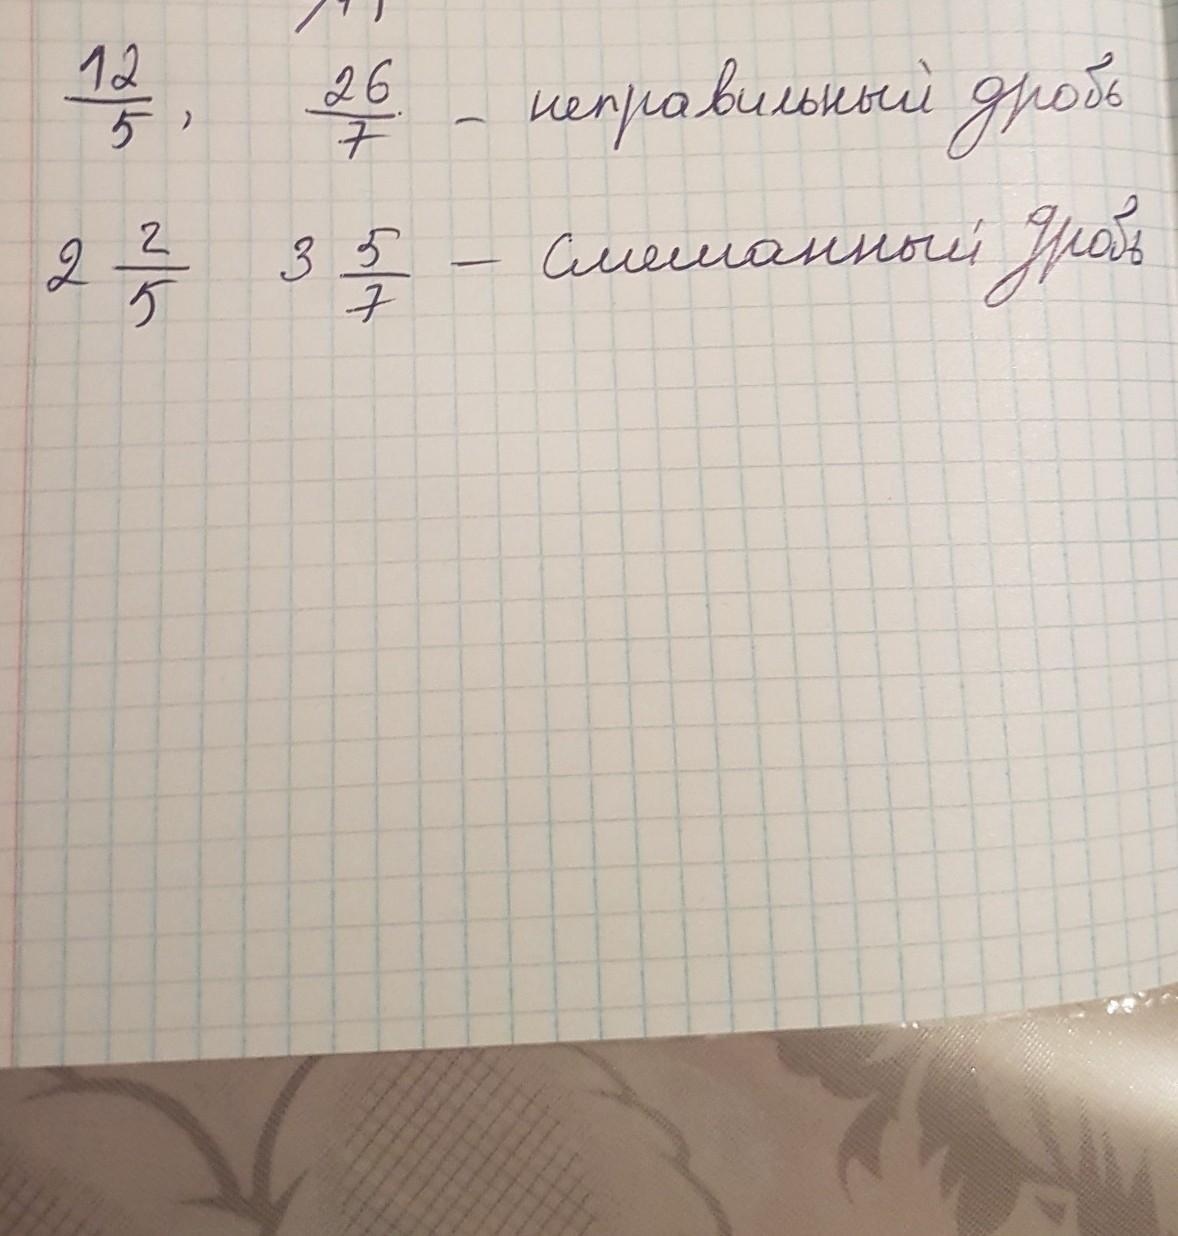 12/5, 26/7 - неправильный дробь
2 2/5 3 5/7 - Смешанный дробь